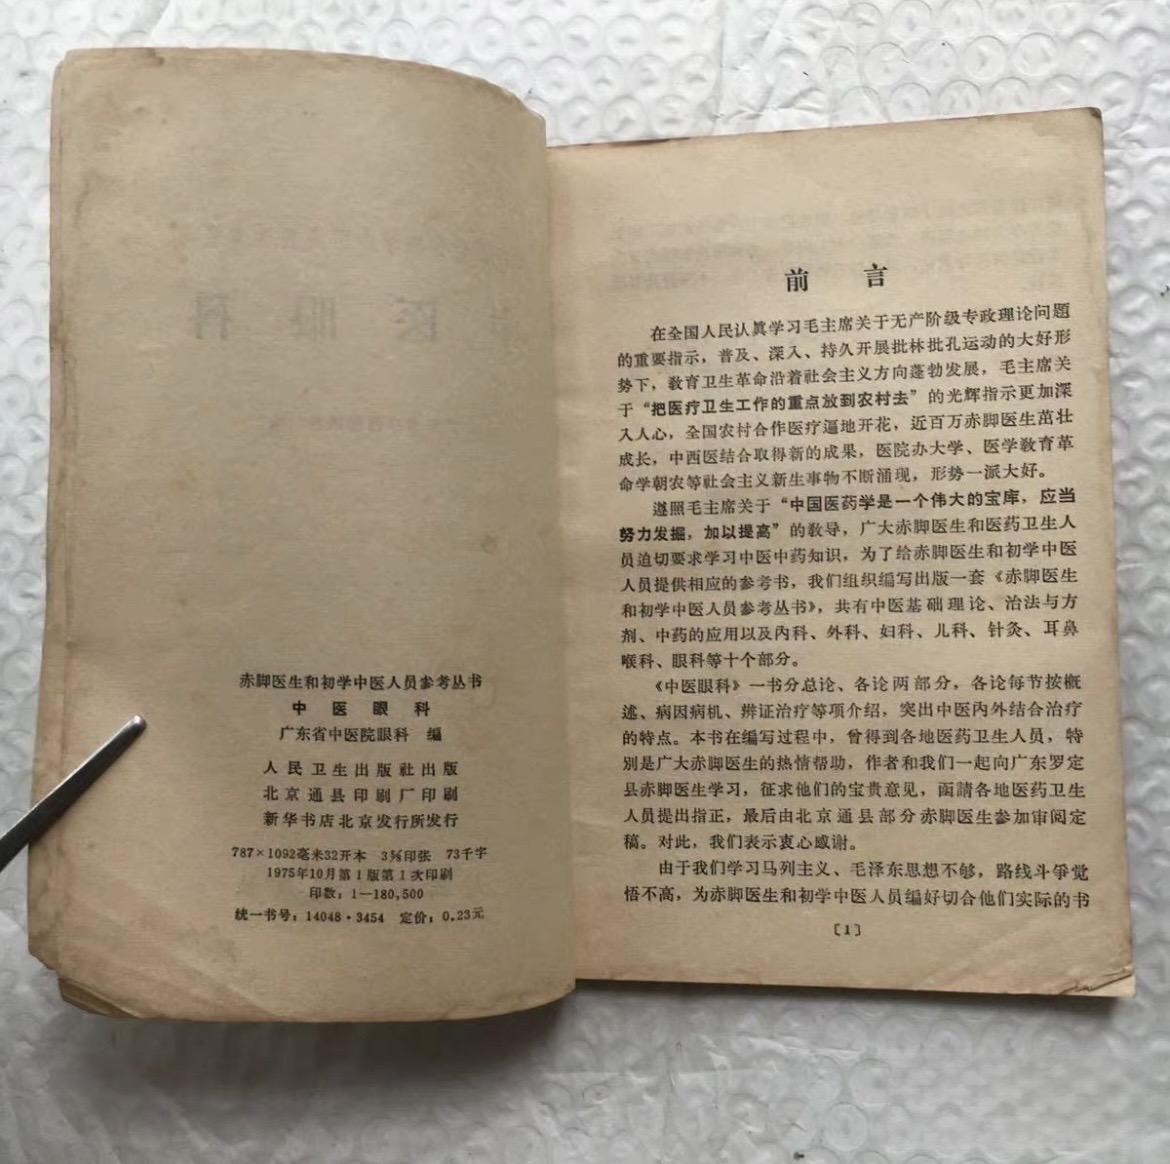 赤脚医生和初学中医人员参考丛书
中医眼科
广东省中医院眼科 编
人民卫生出版社出版
北京通县印刷厂印刷
新华书店北京发行所发行
787×1092毫米32开本 3⅜印张 73千字
1975年10月第1版第1次印刷
印数：1—180,500
统一书号：14048·3454 定价：0.23元
前 言
在全国人民认真学习毛主席关于无产阶级专政理论问题
的重要指示，普及、深入、持久开展批林批孔运动的大好形
势下，教育卫生革命沿着社会主义方向蓬勃发展，毛主席关
于“把医疗卫生工作的重点放到农村去”的光辉指示更加深
入人心，全国农村合作医疗遍地开花，近百万赤脚医生茁壮
成长，中西医结合取得新的成果，医院办大学、医学教育革
命学朝农等社会主义新生事物不断涌现，形势一派大好。
遵照毛主席关于“中国医药学是一个伟大的宝库，应当
努力发掘，加以提高”的教导，广大赤脚医生和医药卫生人
员迫切要求学习中医中药知识，为了给赤脚医生和初学中医
人员提供相应的参考书，我们组织编写出版一套《赤脚医生
和初学中医人员参考丛书》，共有中医基础理论、治法与方
剂、中药的应用以及内科、外科、妇科、儿科、针灸、耳鼻
喉科、眼科等十个部分。
《中医眼科》一书分总论、各论两部分，各论每节按概
述、病因病机、辨证治疗等项介绍，突出中医内外结合治疗
的特点。本书在编写过程中，曾得到各地医药卫生人员，特
别是广大赤脚医生的热情帮助，作者和我们一起向广东罗定
县赤脚医生学习，征求他们的宝贵意见，函請各地医药卫生
人员提出指正，最后由北京通县部分赤脚医生参加审阅定
稿。对此，我们表示衷心感谢。
由于我们学习马列主义、毛泽东思想不够，路线斗爭觉
悟不高，为赤脚医生和初学中医人员编好切合他们实际的书
〔1〕